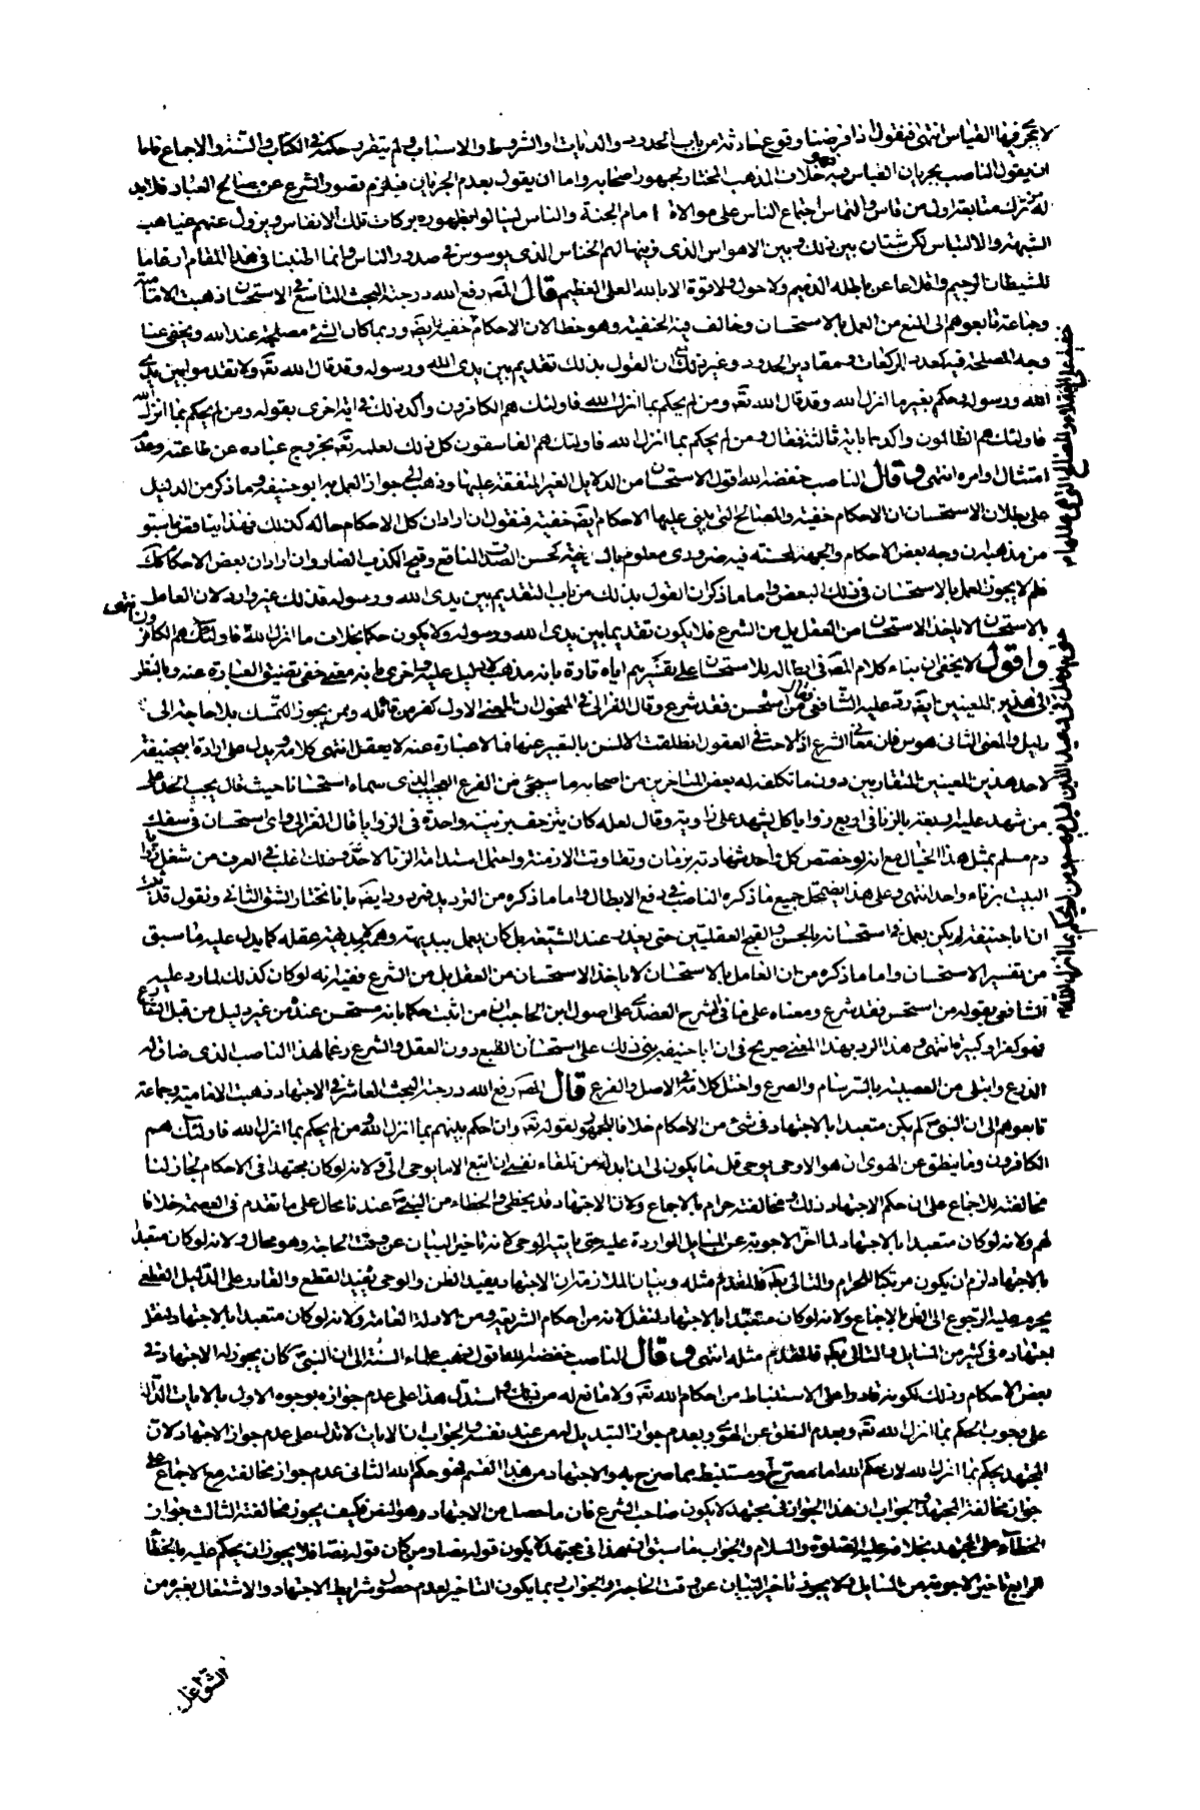 لا يجرى فيها القياس انتهى فنقول اذا فرضنا وقوع حادثة من باب الحدود والديات او الشروط والاسباب ولم يتقرر حكمه فى الكتاب والسنة والاجماع فاما
ان يقول الناصب بجريان القياس فيه فهو خلاف المذهب المختار لجمهور اصحابه واما ان يقول بعدم الجريان فيلزم قصور الشرع عن مصالح العباد فلابد
له من ترك متابعة اول من قاس والتماس اجتماع الناس على موالاة امام الجنة والناس لينالوا بظهوره بركات تلك الانفاس ويزول عنهم غياهب
الشبهة والالتباس لكن شتان بين ذلك وبين الاهواس الذى زينها لهم الخناس الذى يوسوس فى صدور الناس وانما اطنبنا فى هذا المقام ارغاما
للشيطان الرجيم واقلاعا عن باطله الذميم ولا حول ولا قوة الا بالله العلى العظيم قال المصنف رفع الله درجته البحث التاسع فى الاستحسان ذهبت الامامية
وجماعة تابعوهم الى المنع من العمل بالاستحسان وخالف فيه الحنفية وهو خطا لان الاحكام خفية ايضا وربما كان الشئ مصلحة عند الله ويخفى عنا
وجه المصلحة فيه كعدد الركعات ومقادير الحدود وغير ذلك ان القول بذلك تقديم بين يدى الله ورسوله وقد قال الله تعالى ولا تقدموا بين يدى
الله ورسوله وحكم بغير ما انزل الله وقد قال الله تعالى ومن لم يحكم بما انزل الله فاولئك هم الكافرون واكد ذلك فى اية اخرى بقوله ومن لم يحكم بما انزل الله
فاولئك هم الظالمون واكدها باية ثالثة فقال ومن لم يحكم بما انزل الله فاولئك هم الفاسقون كل ذلك لعلمه تعالى بخروج عباده عن طاعته وعدم
امتثال اوامره انتهى وقال الناصب خفضه الله اقول الاستحسان من الدلايل الغير المتفقة عليها وذهب الى جواز العمل به ابو حنيفة وما ذكر من الدليل
على بطلان الاستحسان ان الاحكام خفية والمصالح التى يبنى عليها الاحكام ايضا خفية فنقول ان اراد ان كل الاحكام حاله كذلك فهذا يناقض ما يثبتون
من مذهبه ان وجه بعض الاحكام والجهة المحسنة فيه ضرورى معلوم كحسن الصدق النافع وقبح الكذب الضار وان اراد ان بعض الاحكام كذلك
فلم لا يجوز العمل بالاستحسان فى ذلك البعض واما ما ذكر ان القول بذلك من باب التقديم بين يدى الله ورسوله فذلك غير وارد لان العامل
بالاستحسان لا ياخذ الاستحسان من العقل بل من الشرع فلا يكون تقديما بين يدى الله ورسوله ولا يكون حكما بخلاف ما انزل الله فاولئك هم الكافرون انتهى
واقول لا يخفى ان بناء كلام المصنف فى ابطاله للاستحسان على تفسيرهم اياه تارة بانه مذهب لا دليل عليه واخرى بانه معنى خفى تضيق العبارة عنه وبالنظر
الى هذين المعنيين ايضا رد عليه الشافعى فقال من استحسن فقد شرع وقال الغزالى فى المنخول ان المعنى الاول كفر من قائله ومن يجوز التمسك به لا حاجة الى
دليل والمعنى الثانى هوس فان معانى الشرع اذا لاحت فى العقول انطلقت الالسن بالتعبير عنها فما لا عبارة عنه لا يعقل انتهى كلامه ويدل على ارادة ابيحنيفة
لاحد هذين المعنيين المتقاربين دون ما تكلفه له بعض المتاخرين من اصحابه ما سيجئ من الفرع العجيب الذى سماه استحسانا حيث قال يجب الحد على
من شهد عليه اربعة بالزنا فى اربع زوايا كل يشهد على زاوية وقال لعله كان ينزحف بزنية واحدة فى الزوايا قال الغزالى واى استحسان فى سفك
دم مسلم بمثل هذا الخيال مع انه لو خصص كل واحد شهادته بزمان وتفاوتت الازمنة واحتمل استدامة الزنا لا حد وذلك اغلب فى العرف من شغل زوايا
البيت بزناء واحد انتهى وعلى هذا يضمحل جميع ما ذكره الناصب فى دفع الابطال واما ما ذكره من الترديد فمردود ايضا بانا نختار الشق الثانى ونقول قد ثبت
ان ابا حنيفة لم يكن يعمل فى استحسانه بالحسن والقبح العقليين حتى يعذر عند الشيعة بل كان يعمل ببديهة وهمه لا ببديهة عقله كما يدل عليه ما سبق
من تفسير الاستحسان واما ما ذكره من ان العامل بالاستحسان لا ياخذ الاستحسان من العقل بل من الشرع ففيه انه لو كان كذلك لما رد عليه
الشافعى بقوله من استحسن فقد شرع ومعناه على ما فى الشرح العضدى على اصول ابن الحاجب ان من اثبت حكما بانه مستحسن عنده من غير دليل من قبل الشارع
فهو كفر او كبيرة انتهى وهذا الرد بهذا المعنى صريح فى ان ابا حنيفة يبنى ذلك على استحسان الطبع دون العقل والشرع رغما لهذا الناصب الذى ضاق له
الذرع وابتلى من العصبية بالسرسام والصرع واختل كلامه فى الاصل والفرع قال المصنف رفع الله درجته البحث العاشر فى الاجتهاد ذهبت الامامية وجماعة
تابعوهم الى ان النبى لم يكن متعبدا بالاجتهاد فى شئ من الاحكام خلافا للجمهور لقوله تعالى وان احكم بينهم بما انزل الله ومن لم يحكم بما انزل الله فاولئك هم
الكافرون وما ينطق عن الهوى ان هو الا وحى يوحى قل ما يكون لى ان ابدله من تلقاء نفسى ان اتبع الا ما يوحى الى ولانه لو كان مجتهدا فى الاحكام لجاز لنا
مخالفته للاجماع على ان حكم الاجتهاد ذلك ومخالفته حرام بالاجماع ولان الاجتهاد قد يخطئ والخطاء من النبى عندنا محال على ما تقدم فى العصمة خلافا
لهم ولانه لو كان متعبدا بالاجتهاد لما اخر الاجوبة عن المسايل الواردة عليه حتى ياتيه الوحى لانه تاخير البيان عن وقت الحاجة وهو محال ولانه لو كان متعبدا
بالاجتهاد لزم ان يكون مرتكبا للحرام والتالى بط فالمقدم مثله وبيان الملازمة ان الاجتهاد يفيد الظن والوحى يفيد القطع والقادر على الدليل القطعى
يحرم عليه الرجوع الى الظن بالاجماع ولانه لو كان متعبدا بالاجتهاد لنقل لانه من احكام الشريعة ومن الادلة العامة ولانه لو كان متعبدا بالاجتهاد لنقل
اجتهاده فى كثير من المسايل والتالى بط فالمقدم مثله انتهى وقال الناصب خفضه الله اقول مذهب علماء السنة الى ان النبى كان يجوز له الاجتهاد فى
بعض الاحكام وذلك لكونه قادرا على الاستنباط من احكام الله تعالى ولا مانع له من ذلك واستدل هذا على عدم جوازه بوجوه الاول بالايات الدالة
على وجوب الحكم بما انزل الله تعالى وبعدم النطق عن الهوى وبعدم جواز التبديل من عند نفسه والجواب ان الايات لا تدل على عدم جواز الاجتهاد لان
المجتهد يحكم بما انزل الله لان حكم الله اما مصرح او مستنبط مما صرح به والاجتهاد من هذا القسم فهو حكم الله الثانى عدم جواز مخالفته مع الاجماع على
جواز مخالفة المجتهد والجواب ان هذا الجواز فى مجتهد لا يكون صاحب الشرع فان ما حصل من الاجتهاد وهو النص فكيف يجوز مخالفته الثالث جواز
الخطاء على المجتهد بخلافه عليه الصلوة والسلام والجواب ما سبق ان هذا فى مجتهد لا يكون قوله نصا ومن كان قوله نصا فلا يجوز ان يحكم عليه بالخطا
الرابع تاخير الاجوبة من المسايل ولا يجوز تاخير البيان عن وقت الحاجة والجواب ربما يكون التاخير لعدم حصول شرايط الاجتهاد والاشتغال بغيره من
الشواغل